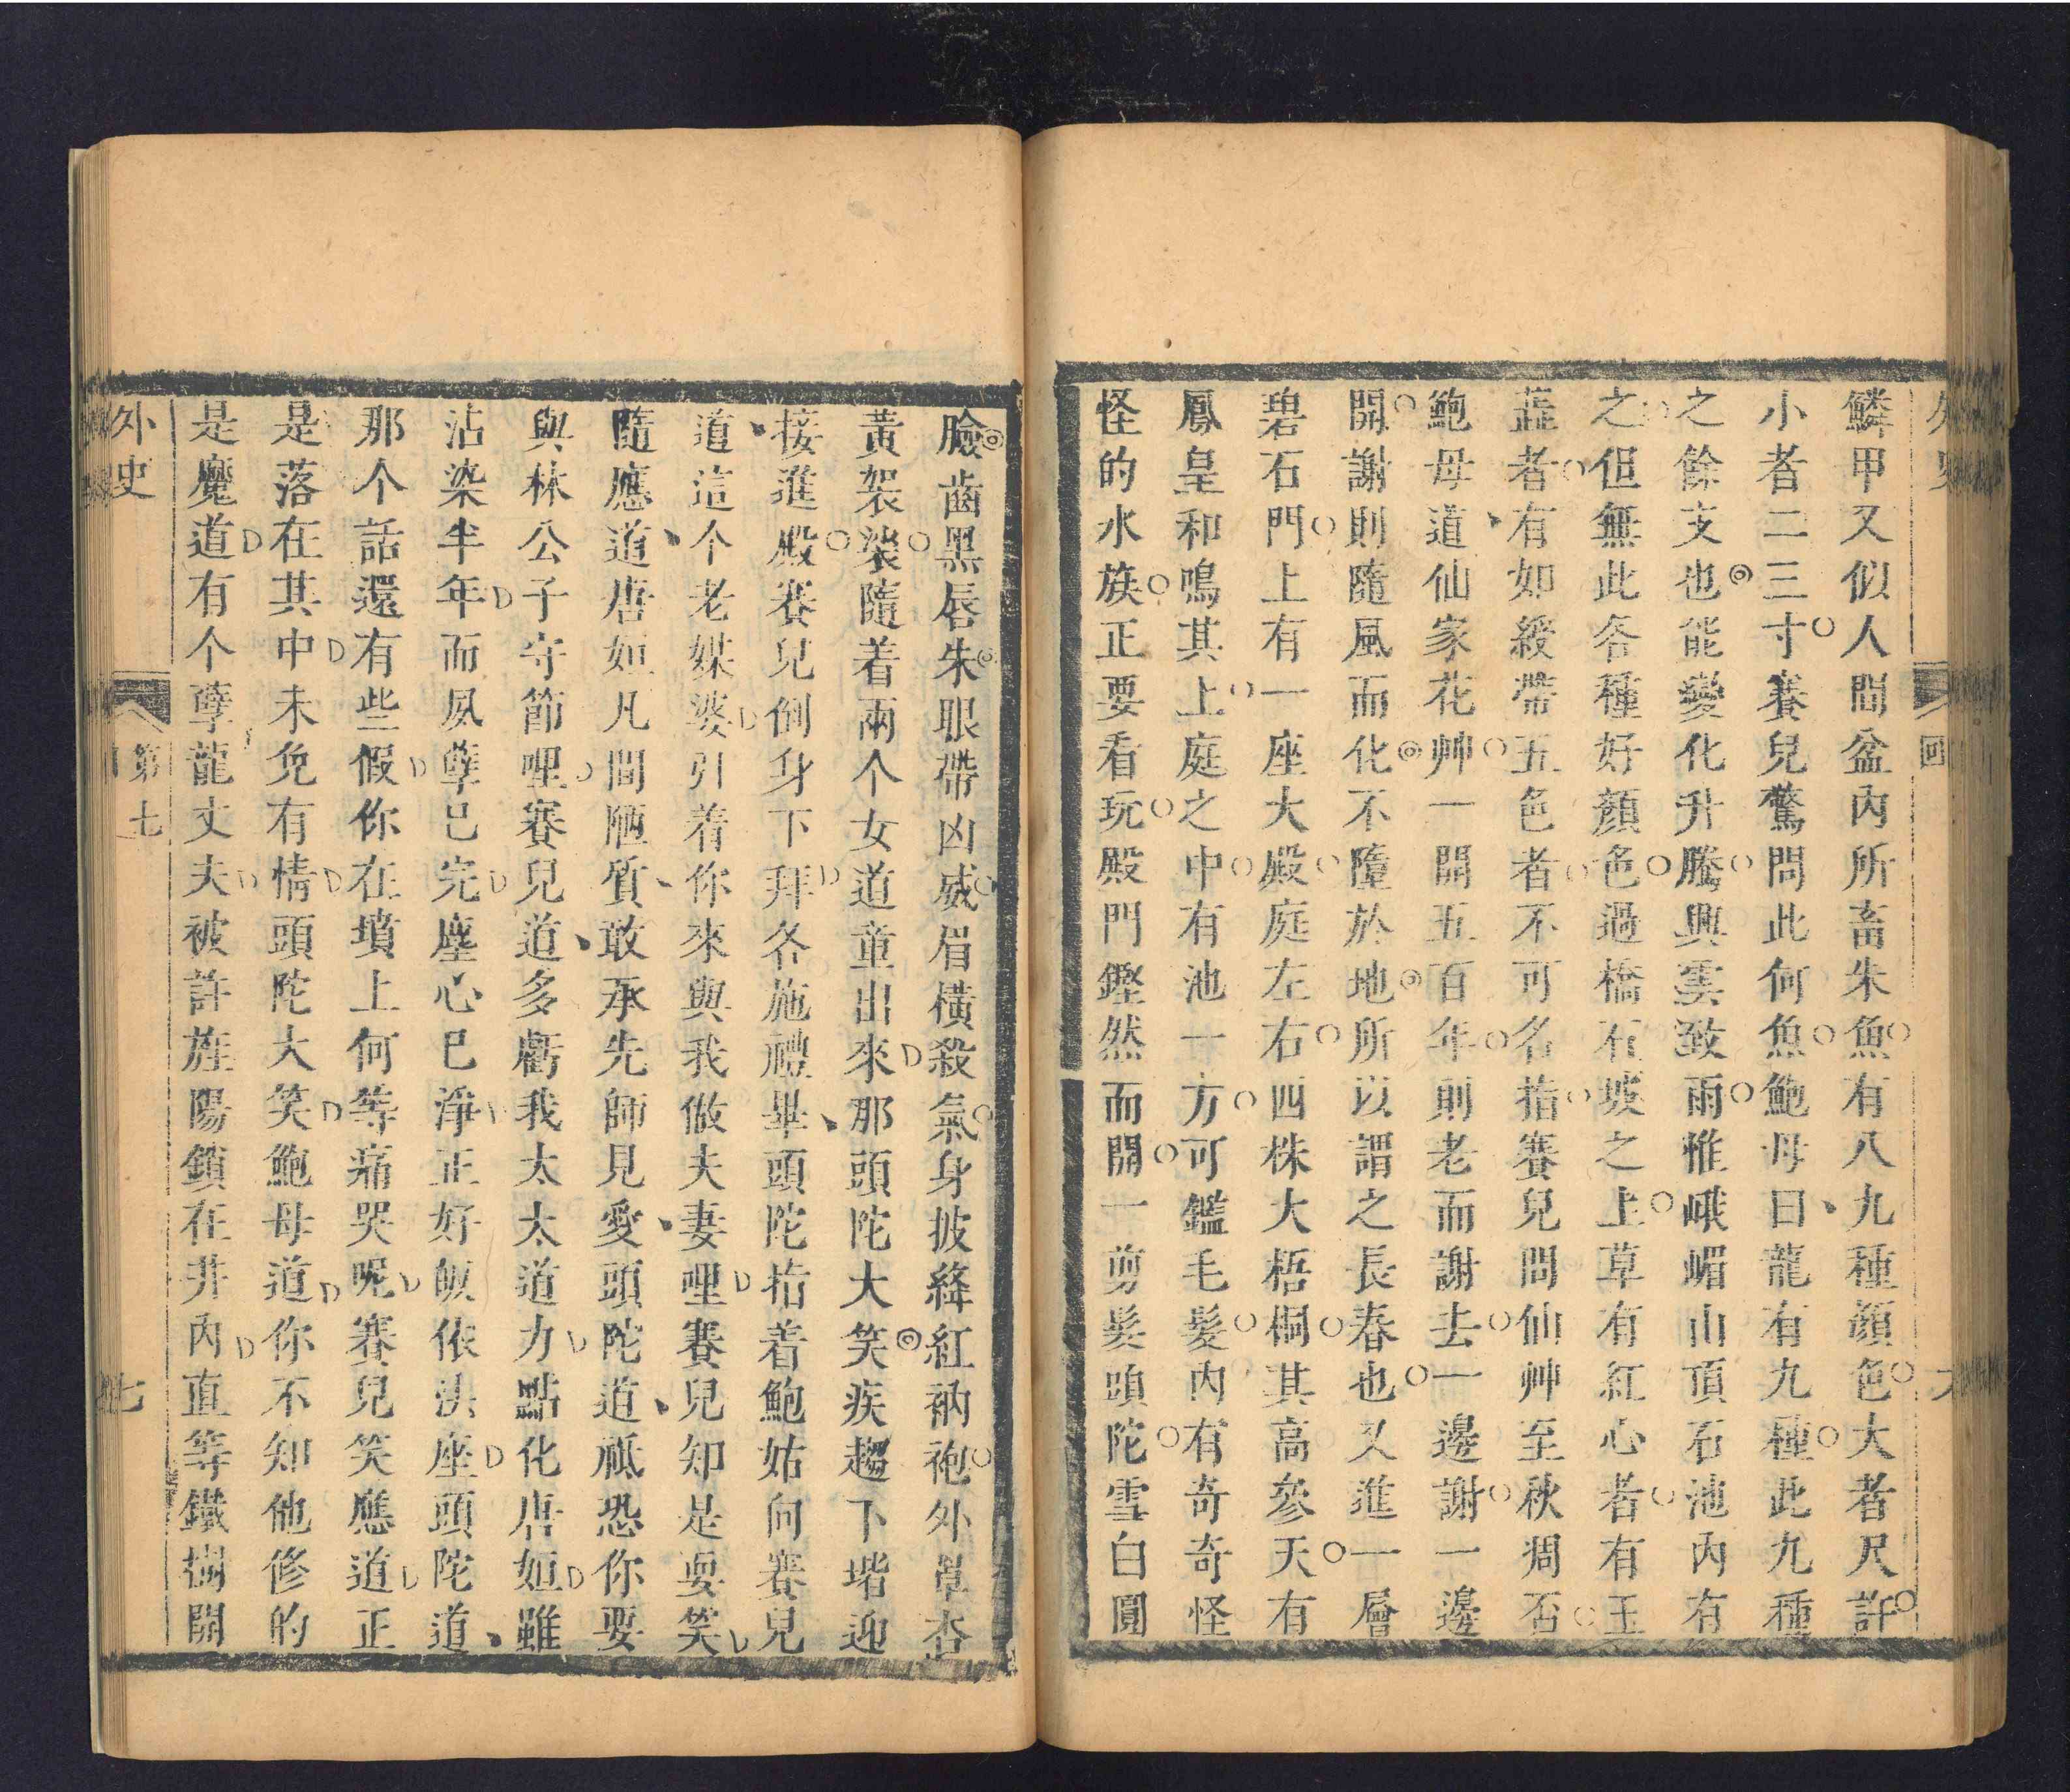 鱗甲又似人間盆內所畜朱魚有八九種顏色大者尺許
小者二三寸賽兒驚問此何魚鮑母曰龍有九種此九種
之餘支也能變化升騰興雲致雨惟峨嵋山頂石池內有
之但無此各種好顏色過橋石坡之上草有紅心者有玉
蕋者有如綬帶五色者不可名指賽兒問仙艸至秋凋否
鮑母道仙家花艸一開五百年則老而謝去一邊謝一邊
開謝則隨風而化不墮於地所以謂之長春也又進一層
碧石門上有一座大殿庭左右四株大梧桐其高參天有
鳳皇和鳴其上庭之中有池一方可鑑毛髮內有奇奇怪
怪的水族正要看玩殿門鏗然而開一剪髮頭陀雪白圓
臉齒黑唇朱眼帶凶威眉橫殺氣身披絳紅衲袍外罩杏
黃袈裟隨着兩个女道童出來那頭陀大笑疾趨下堦迎
接進殿賽兒倒身下拜各施禮畢頭陀指着鮑姑向賽兒
道這个老媒婆引着你來與我做夫妻哩賽兒知是耍笑
隨應道唐姮凡間陋質敢承先師見愛頭陀道祗恐你要
與林公子守節哩賽兒道多虧我太太道力點化唐姮雖
沾染半年而夙孽已完塵心已淨正好皈依法座頭陀道
那个話還有些假你在墳上何等痛哭呢賽兒笑應道正
是落在其中未免有情頭陀大笑鮑母道你不知他修的
是魔道有个孽龍丈夫被許旌陽鎖在井內直等鐵樹開
外史
第七
七